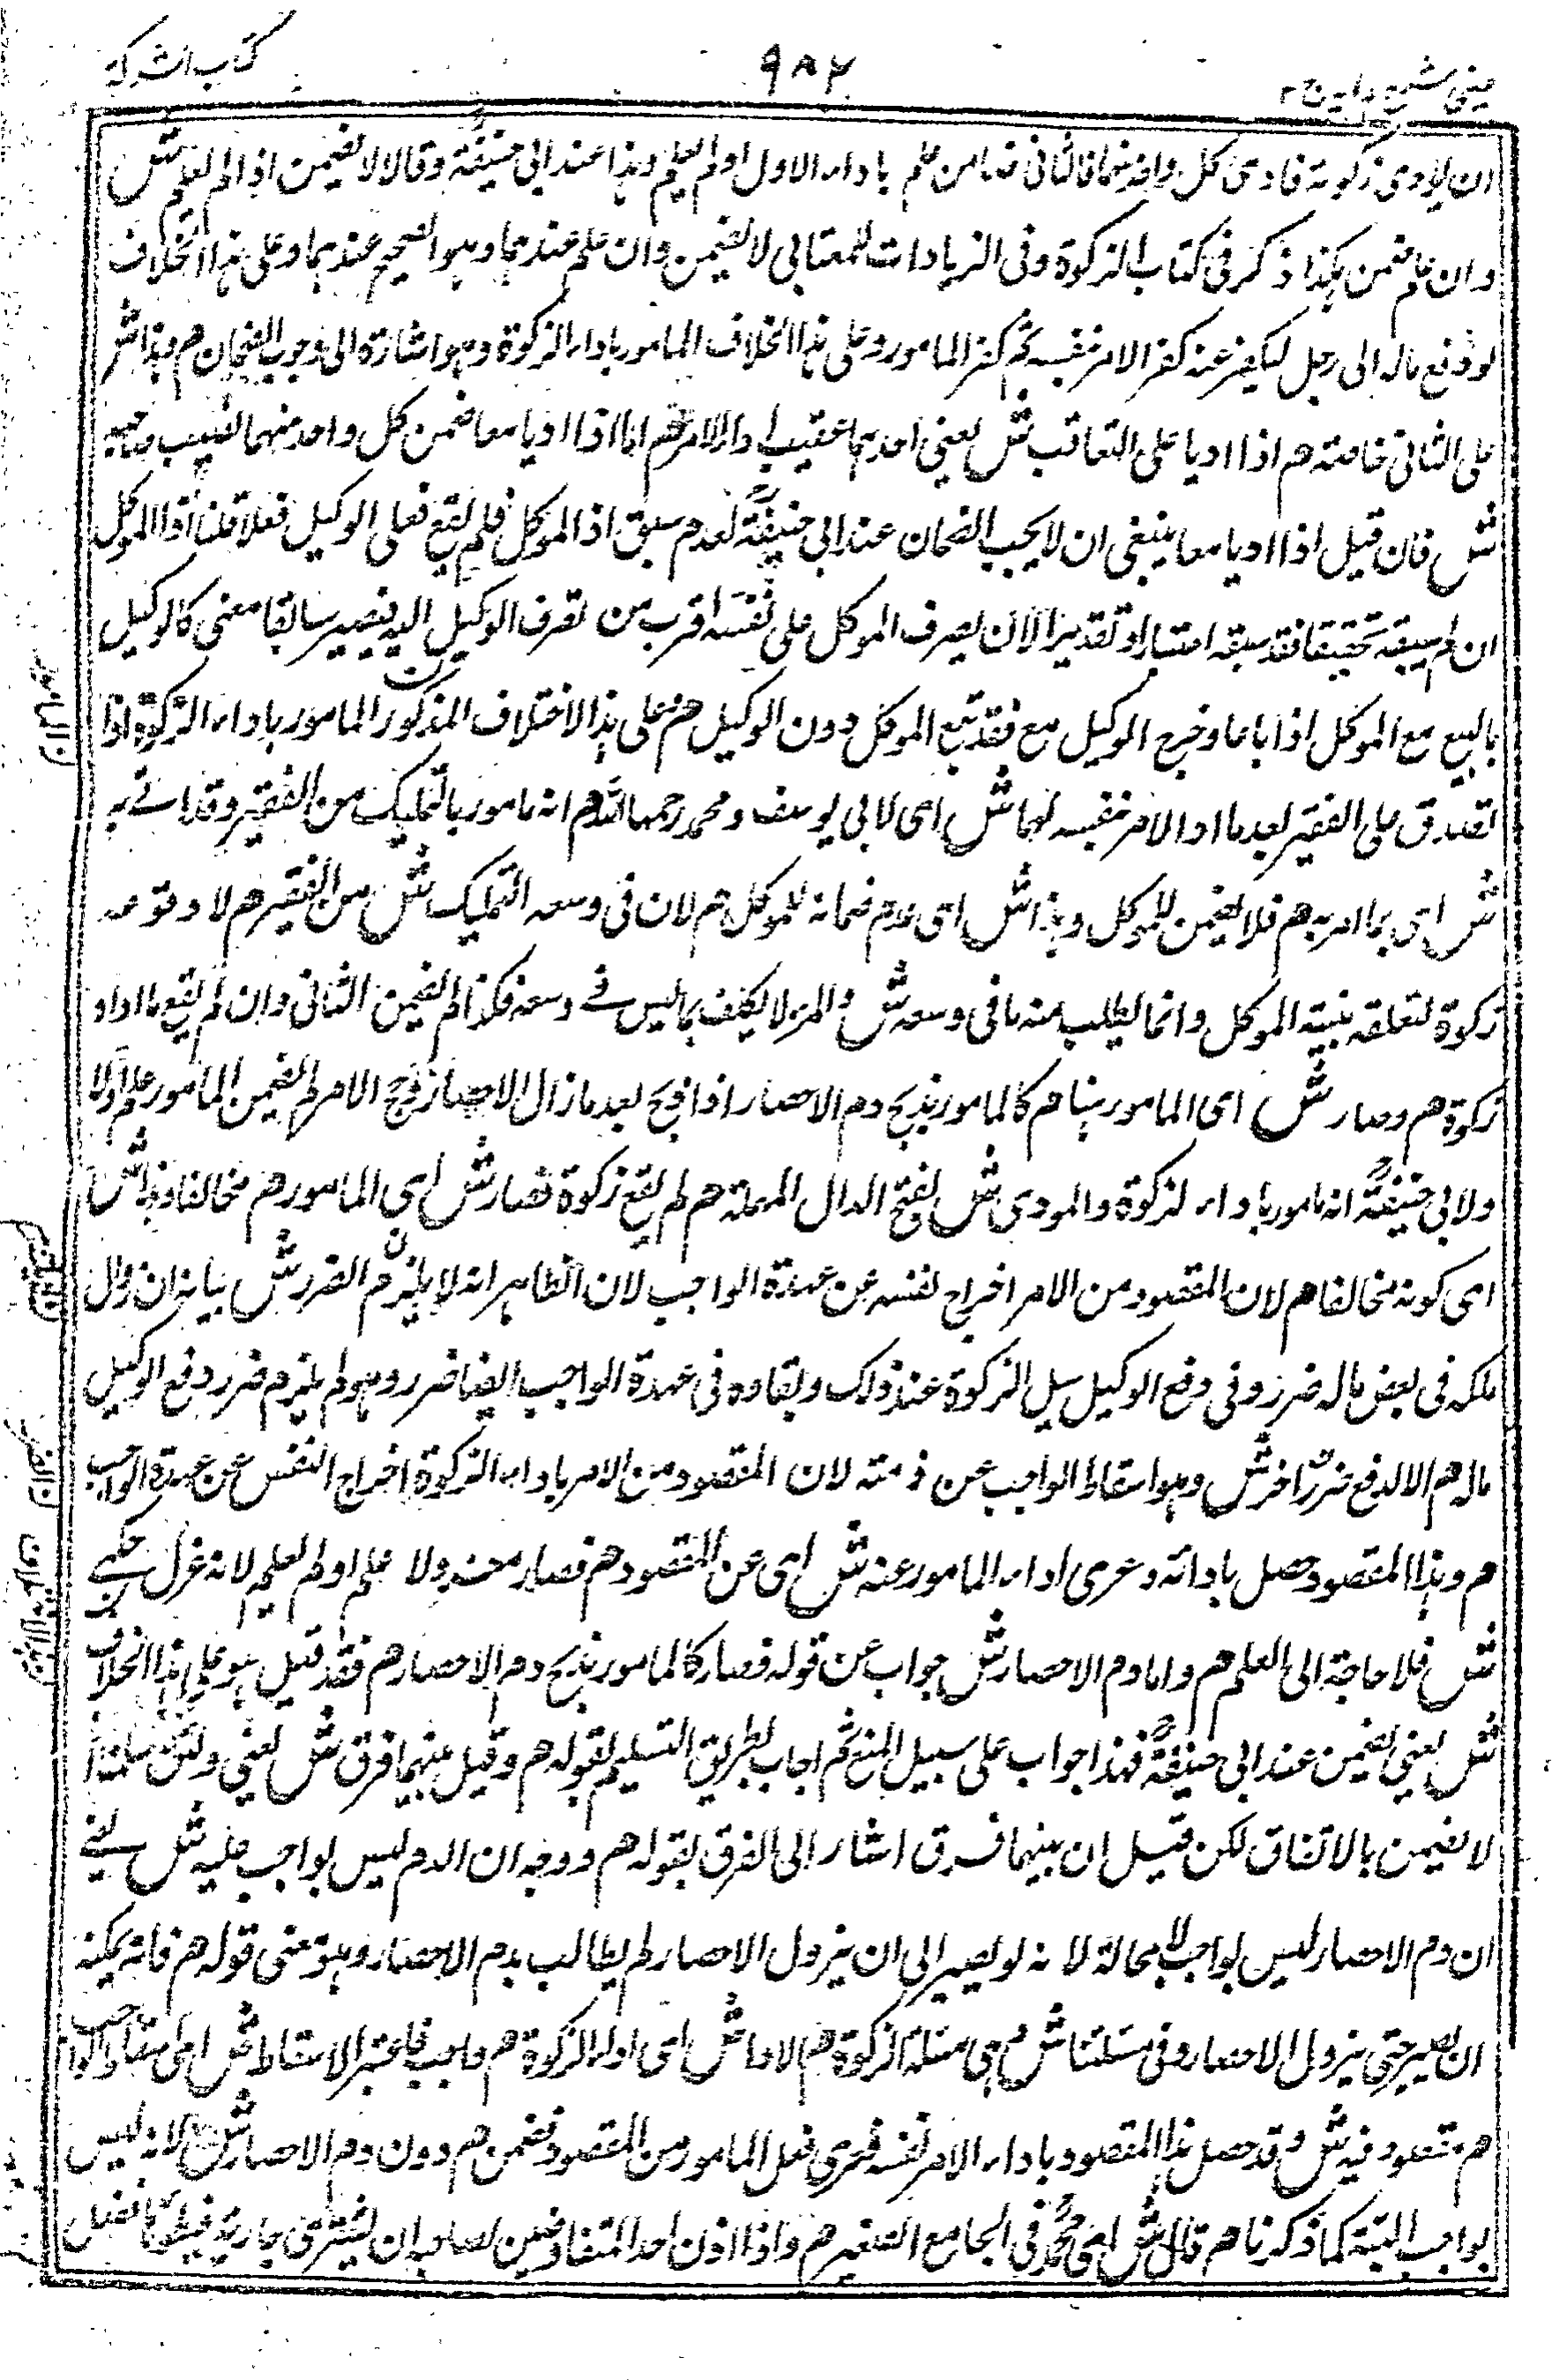 عینی شرح ہدایہ ج ۲
۹۸۲
کتاب الشرکۃ
ان یؤدی زکوتہ فادی کل واحد منہما فالثانی ضامن علم باداء الاول او لم یعلم وہذا عند ابی حنیفۃ وقالا لا یضمن اذا لم یعلم ش
وان علم ضمن ہکذا ذکر فی کتاب الزکوۃ وفی الزیادات للعتابی لا یضمن وان علم عندہما وہو الصحیح عندہما وعلی ہذا الخلاف
لو دفع مالہ الی رجل لیکفر عنہ کفر الامر نفسہ ثم کفر المامور وعلی ہذا الخلاف المامور باداء الزکوۃ وہو اشارۃ الی وجوب الضمان م وہذا ش
علی الثانی خاصتہ م اذا ادیا علی التعاقب ش یعنی احدہما عقیب اداء الاخر م اما اذا ادیا معا ضمن کل واحد منہما نصیب صاحبہ
ش فان قیل اذا ادیا معا ینبغی ان لا یجب الضمان عند ابی حنیفۃ لعدم سبق اداء الموکل فلم یقع فعلی الوکیل فعلا قلنا اداء الموکل
ان لم یسبقہ تحقیقا فقد سبقہ اعتبارا و تقدیرا لان تصرف الموکل علی نفسہ اقرب من تصرف الوکیل الیہ فیصیر سابقا معنی کالوکیل
بالبیع مع الموکل اذا باعا وخرج الوکیل مع فقد بیع الموکل دون الوکیل م وعلی ہذا الاختلاف المذکور المامور باداء الزکوۃ اذا
تصدق علی الفقیر بعد ما ادی الامر نفسہ لہما ش ای لابی یوسف ومحمد رحمہما اللہ م انہ مامور بالتملیک من الفقیر وقد اتے بہ
ش ای بما امر بہ م فلا یضمن للموکل وہذا ش ای عدم ضمانہ للموکل م لان فی وسعہ التملیک ش من الفقیر م لا وقوعہ
زکوۃ لتعلقہ بنیۃ الموکل وانما یطلب منہ ما فی وسعہ ش والمرء لا یکلف بما لیس فے وسعہ فکذا لم یضمن الثانی وان لم یقع ما اداہ
زکوۃ م وصار ش ای المامور ہنا م کالمامور بذبح دم الاحصار اذا ذبح بعد ما زال الاحصار وحج الامر لم یضمن المامور علم اولا
ولابی حنیفۃ انہ مامور باداء الزکوۃ والمودی ش بفتح الدال المہملۃ م لم یقع زکوۃ فصار ش ای المامور م مخالفا وہذا ش
ای کونہ مخالفا م لان المقصود من الامر اخراج نفسہ عن عہدۃ الواجب لان الظاہر انہ لا یلتزم الضرر ش بیانہ ان زوال
ملکہ فی بعض مالہ ضرر وفی دفع الوکیل سبیل الزکوۃ عند ذلک وبقاءہ فی عہدۃ الواجب ایضا ضرر وہو لم یلتزم ضرر دفع الوکیل
مالہ م الا لدفع ضرر اخر ش وہو اسقاط الواجب عن ذمتہ لان المقصود من الامر باداء الزکوۃ اخراج النفس عن عہدۃ الواجب
م وہذا المقصود حصل بادائہ وعری اداء المامور عنہ ش ای عن المقصود م فصار معزولا علم او لم یعلم لانہ عزل حکمے
ش فلا حاجۃ الی العلم م واما دم الاحصار ش جواب عن قولہ فصار کالمامور بذبح دم الاحصار م فقد قیل ہو علی ہذا الخلاف
ش یعنی یضمن عند ابی حنیفۃ فہذا جواب علی سبیل المنع ثم اجاب بطریق التسلیم بقولہ م وقیل بینہما فرق ش یعنی ولئن سلمنا
لا یضمن بالاتفاق لکن قیل ان بینہما فرق اشار الی الفرق بقولہ م ووجہ ان الدم لیس بواجب علیہ ش یعنے
ان دم الاحصار لیس بواجب لا محالۃ لانہ لو یصبر الی ان یزول الاحصار لم یطالب بدم الاحصار وہو معنی قولہ م فانہ یمکنہ
ان یصبر حتی یزول الاحصار وفی مسئلتنا ش ای مسئلۃ الزکوۃ م الاداء ش ای اداء الزکوۃ م واجب فاعتبر الاسقاط ش ای اسقاط الواجب
م مقصود فیہ ش وقد حصل ہذا المقصود باداء الامر نفسہ فعری فعل المامور من المقصود فضمن م دون دم الاحصار ش لانہ لیس
بواجب البتۃ کما ذکرنا م قال ش ای محمد فی الجامع الصغیر م واذا اذن احد المتفاوضین لصاحبہ ان یشتری جاریۃ فیطأہا ففعل